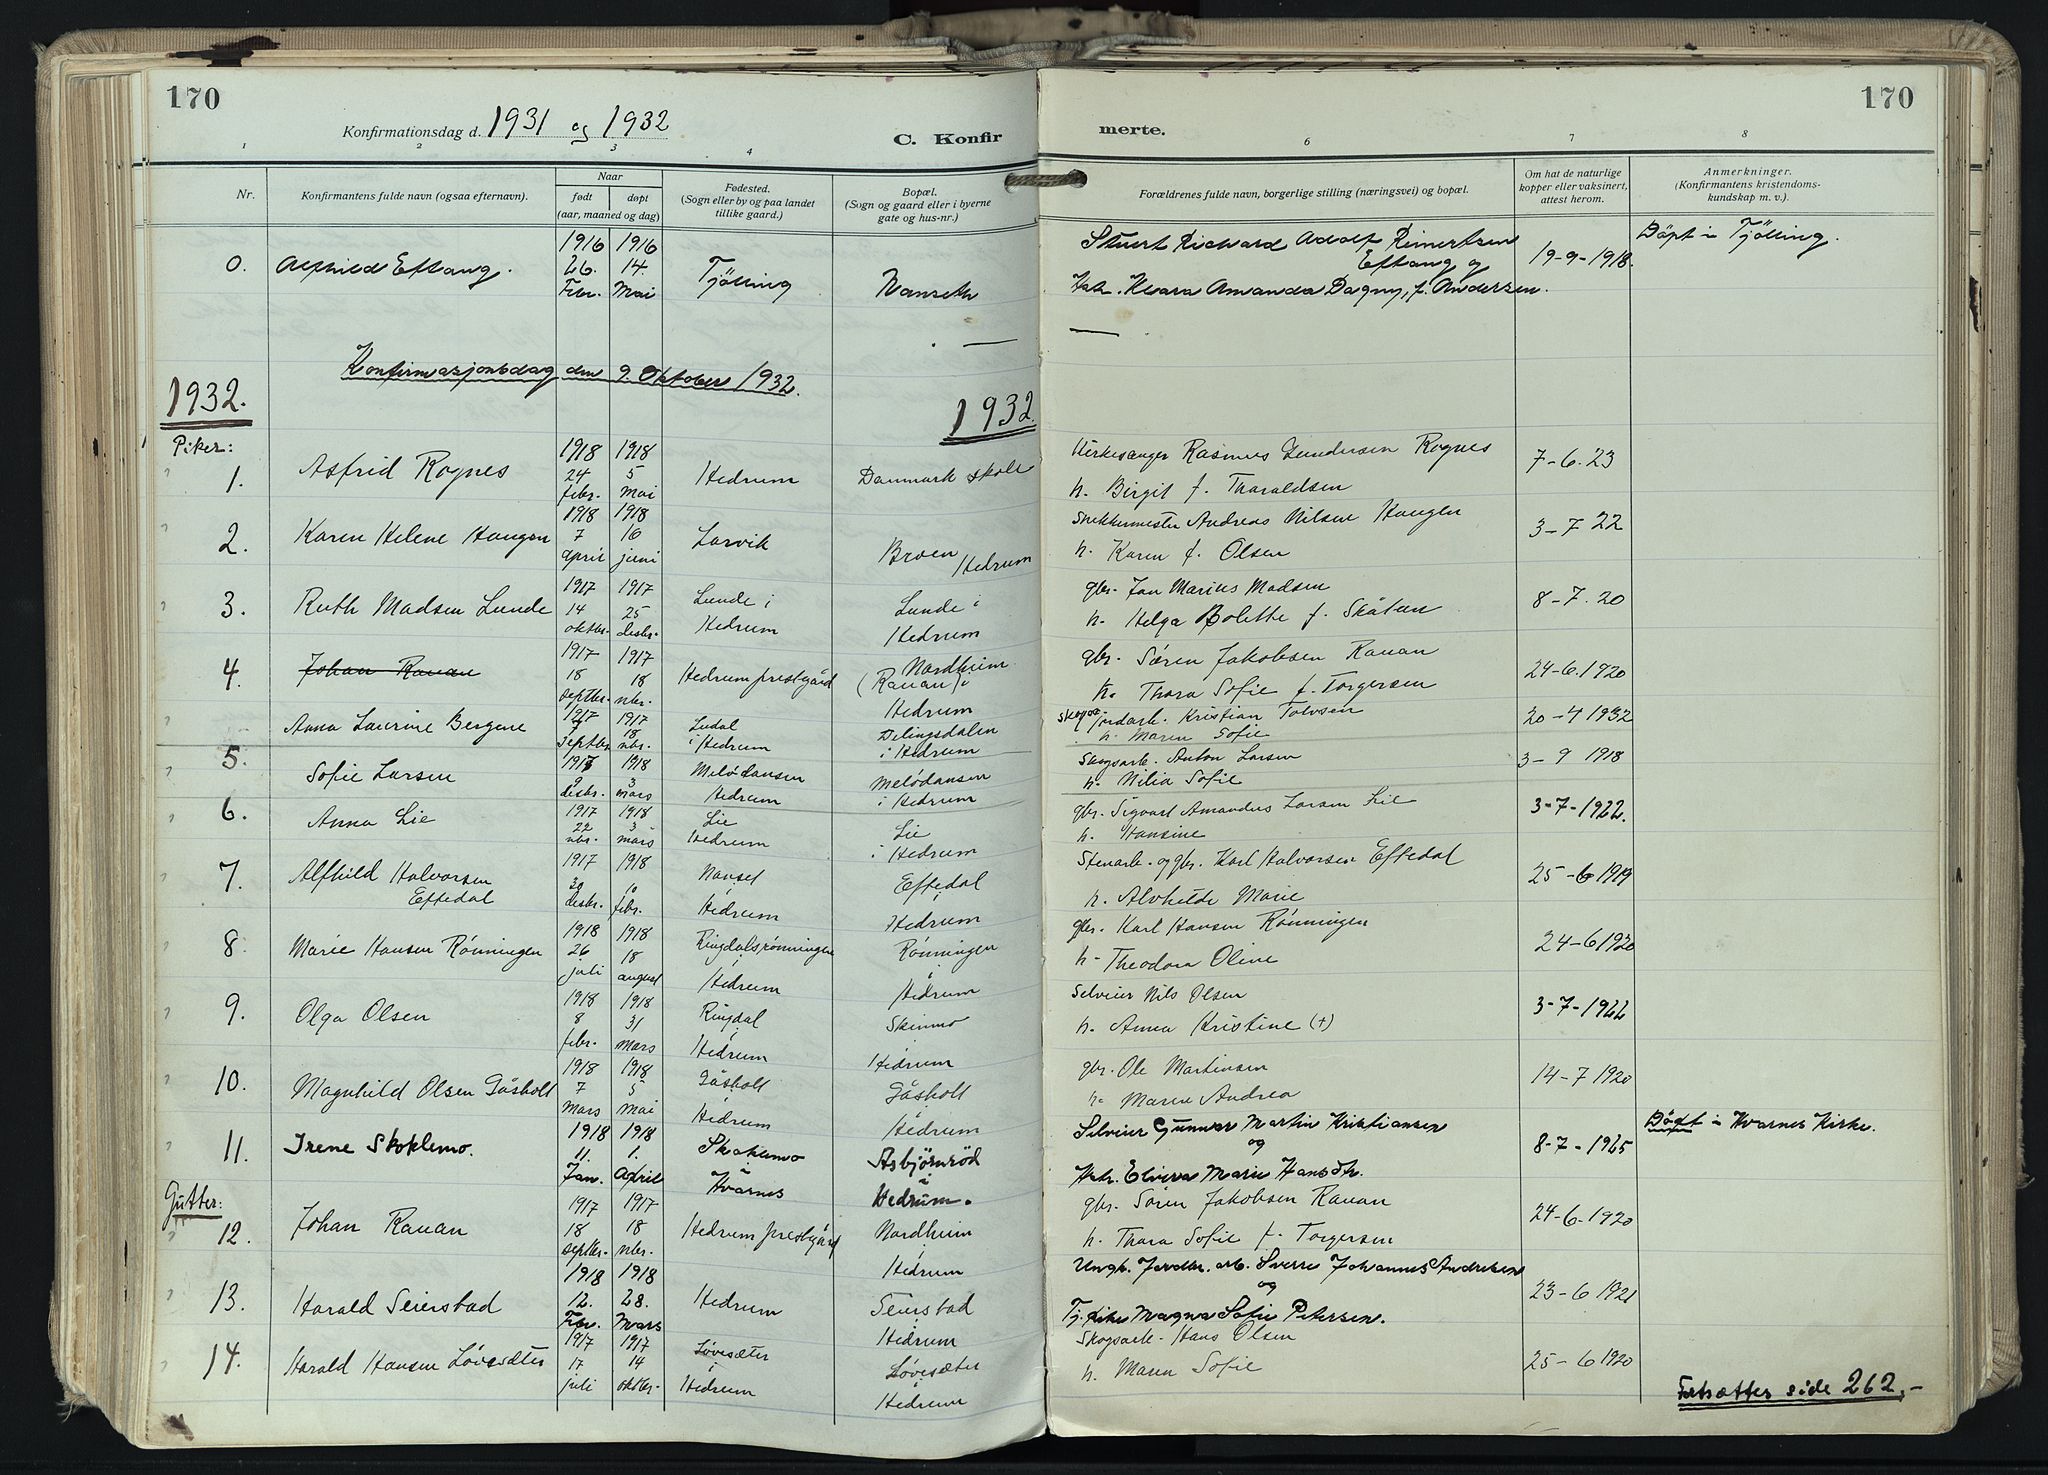 170
170
Konfirmationsdag d. 1931 og 1932
C. Konfir
merte.
1 2 3 4 6 7 8
Nr.
Konfirmantens fulde navn (ogsaa efternavn).
Naar
født døpt
(aar, maaned og dag)
Fødested.
(Sogn eller by og paa landet
tillike gaard.)
Bopæl.
(Sogn og gaard eller i byerne
gate og hus-nr.)
Forældrenes fulde navn, borgerlige stilling (næringsvei) og bopæl.
Om hat de naturlige
kopper eller vaksinert,
attest herom.
Anmerkninger.
(Konfirmantens kristendoms-
kundskap m. v.).
0. Alfhild Eftang. 1916 26. Febr. 1916 14. Mai Tjölling Nanseth
Stuert Richard Adolf Reinertsen
Eftang og
Hstr. Klara Amanda Dagny, f. Andersen. 19-9-1918. Döpt i Tjölling.
Konfirmasjonsdag den 9. Oktober 1932.
1932.
1932
Piker:
1. Astrid Rognes 1918 24 febr. 1918 5 mai Hedrum Danmark skole
Kirkesanger Rasmus Gundersen Rognes
h. Birgit f. Tharaldsen 7-6.23
2. Karen Helene Haugen 1918 7 april 1918 16 juni Larvik Broen Hedrum
Snekkermester Andreas Nilsen Haugen
h. Karen f. Olsen 3-7 22
3. Ruth Madsen Lunde 1917 14 oktbr. 1917 25 desbr. Lunde i Hedrum Lunde i Hedrum
gbr. Jan Marius Madsen
h. Helga Bolette f. Skåtun 8-7.20
4. Johan Rauan 1917 18 septbr. 1917 18 nbr. Hedrum prestgård Nordheim (Rauan) i Hedrum
gbr. Søren Jakobsen Rauan
h. Thara Sofie f. Torgersen 24-6.1920
Anna Laurine Bergene 1917 septbr 1917 18 nbr. i Hedrum Delingsdalen i Hedrum
skog og jordarb. Kristian Tolvsen
h. Maren Sofie 20-4 1932
5. Sofie Larsen 1917 2 desbr. 1918 3 mars Melödansen Hedrum Melödansen i Hedrum
Skogsarb. Anton Larsen
h. Nilia Sofie 3-9 1918
6. Anna Lie 1917 22 nbr. 1918 3 mars Lie Hedrum Lie i Hedrum
gbr. Sigvart Amandus Larsen Lie
h. Hansine 3-7-1922.
7. Alfhild Halvorsen
Eftedal 1917 30 desbr. 1918 10 febr. Nanset i Hedrum Eftedal i Hedrum
Stenarb. og gbr. Karl Halvorsen Eftedal
h. Alvhilde Marie 25-6 1919
8. Marie Hansen Rönningen 1918 26 juli 1918 18 august Ringdalsrönningen i Hedrum Rönningen i Hedrum
gbr. Karl Hansen Rönningen
h. Theodora Oline 24-6 1920
9. Olga Olsen 1918 8 febr. 1918 31 mars Ringdal i Hedrum Skinmo Hedrum
Selveier Nils Olsen
h. Anna Kristine (+) 3-7-1922
10. Magnhild Olsen Gåsholt 1918 7 mars 1918 5 mai Gåsholt i Hedrum Gåsholt i Hedrum
gbr. Ole Martinsen
h. Maren Andrea 14-7 1920
11. Irene Skoklemo. 1918 11. Jan. 1918 1. April Skoklemo i Hvarnes Asbjörnröd i Hedrum.
Selveier Gunnar Martin Kristiansen
og
Hstr. Elvira Marie Hansdtr. 8-7-1925 Dödt i Hvarnes Kirke.
Gutter:
12. Johan Rauan 1917 18 septbr. 1917 18 nbr. Hedrum prestgård Nordheim i Hedrum
gbr. Sören Jakobsen Rauan
h. Thara Sofie f. Torgersen 24-6.1920
13. Harald Seierstad 1918 12. Febr. 1918 28. Mars Hedrum Seierstad i Hedrum
Ungk. Jordbr. arb. Sverre Johannes Andresen
og
Tj. pike Magna Sofie Petersen. 23-6 1921
14. Harald Hansen Lövesæter 1917 17 juli 1917 14 oktbr. Lövesæter i Hedrum Lövesæter i Hedrum
Skogsarb. Hans Olsen
h. Maren Sofie 25-6 1920
Fortsætter side 262.-